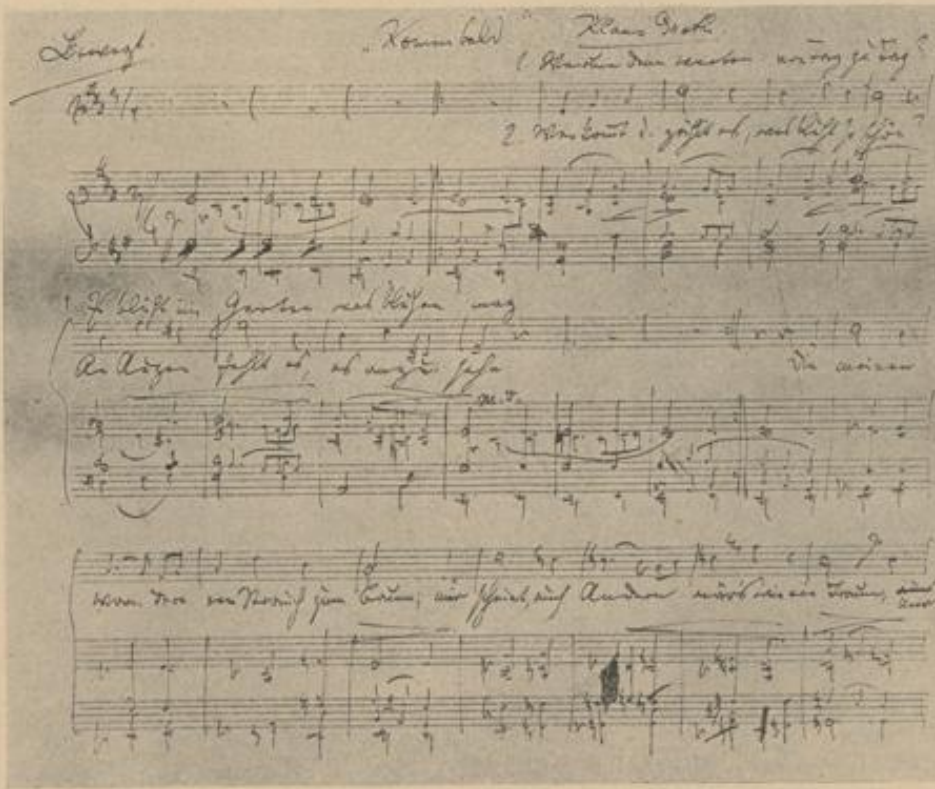 Bewegt. „Komm bald" Klaus Groth.
1. Warum denn warten von Tag zu Tag?
2. Wer kommt u. zählt es, was blüht so schön?
1. Es blüht im Garten was blühen mag
An Augen fehlt es, es anzusehn Die meinen
wandern vom Strauch zum Baum; mir scheint, auch Andern wär's wie ein Traum,